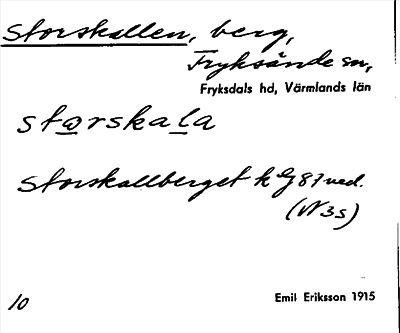 Storskallen, berg,
Fryksände sn,
Fryksdals hd, Värmlands län
starskala
Storskallberget k G 87 ved.
(N 3s)
10
Emil Eriksson 1915